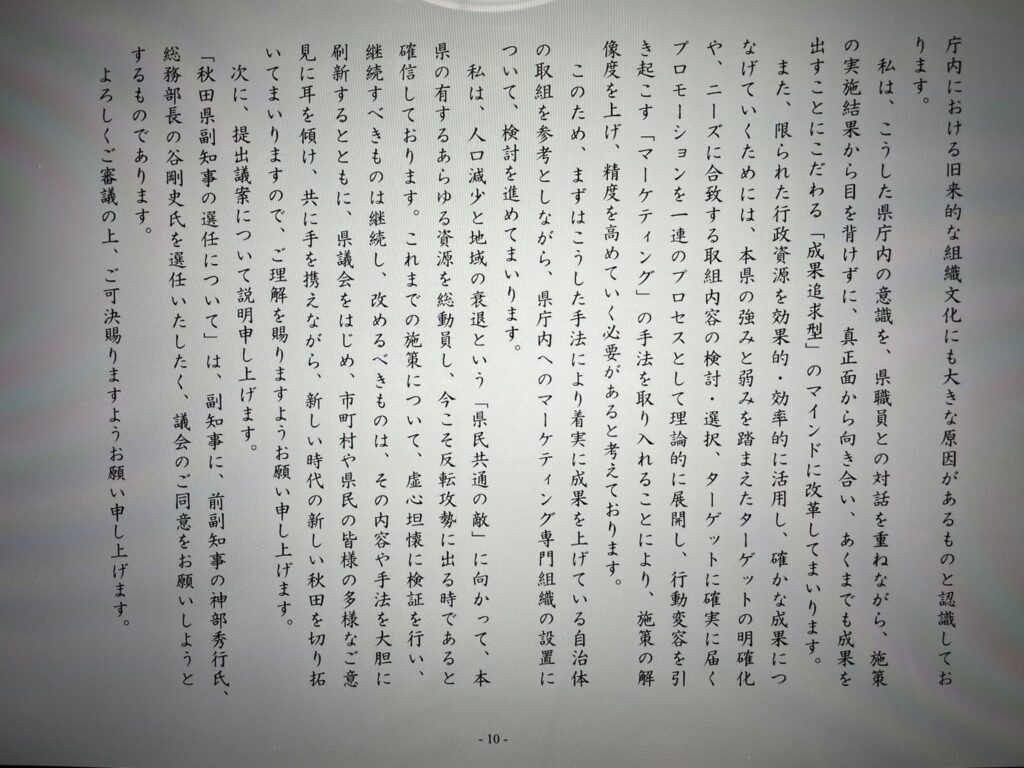 庁内における旧来的な組織文化にも大きな原因があるものと認識してお
ります。
私は、こうした県庁内の意識を、県職員との対話を重ねながら、施策
の実施結果から目を背けずに、真正面から向き合い、あくまでも成果を
出すことにこだわる「成果追求型」のマインドに改革してまいります。
また、限られた行政資源を効果的・効率的に活用し、確かな成果につ
なげていくためには、本県の強みと弱みを踏まえたターゲットの明確化
や、ニーズに合致する取組内容の検討・選択、ターゲットに確実に届く
プロモーションを一連のプロセスとして理論的に展開し、行動変容を引
き起こす「マーケティング」の手法を取り入れることにより、施策の解
像度を上げ、精度を高めていく必要があると考えております。
このため、まずはこうした手法により着実に成果を上げている自治体
の取組を参考としながら、県庁内へのマーケティング専門組織の設置に
ついて、検討を進めてまいります。
私は、人口減少と地域の衰退という「県民共通の敵」に向かって、本
県の有するあらゆる資源を総動員し、今こそ反転攻勢に出る時であると
確信しております。これまでの施策について、虚心坦懐に検証を行い、
継続すべきものは継続し、改めるべきものは、その内容や手法を大胆に
刷新するとともに、県議会をはじめ、市町村や県民の皆様の多様なご意
見に耳を傾け、共に手を携えながら、新しい時代の新しい秋田を切り拓
いてまいりますので、ご理解を賜りますようお願い申し上げます。
次に、提出議案について説明申し上げます。
「秋田県副知事の選任について」は、副知事に、前副知事の神部秀行氏、
総務部長の谷剛史氏を選任いたしたく、議会のご同意をお願いしようと
するものであります。
よろしくご審議の上、ご可決賜りますようお願い申し上げます。
- 10 -